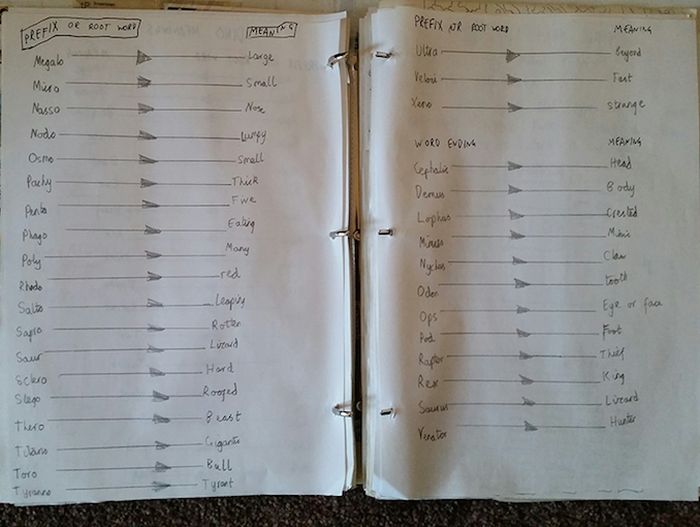 PREFIX OR ROOT WORD MEANING
Megalo Large
Micro Small
Nasso Nose
Nodo Lumpy
Osmo Small
Pachy Thick
Penta Five
Phago Eating
Poly Many
Rhodo red
Salto Leaping
Sapro Rotten
Saur Lizard
Sclero Hard
Stego Roofed
Thero Beast
Titano Gigantic
Toro Bull
Tyranno Tyrant
PREFIX OR ROOT WORD MEANING
Ultra Beyond
Veloci Fast
Xeno strange
WORD ENDING MEANING
Cephalis Head
Demus Body
Lophus Crested
Mimus Mimic
Nychus Claw
Odon tooth
Ops Eye or face
Pod Foot
Raptor Thief
Rex King
Saurus Lizard
Venator Hunter